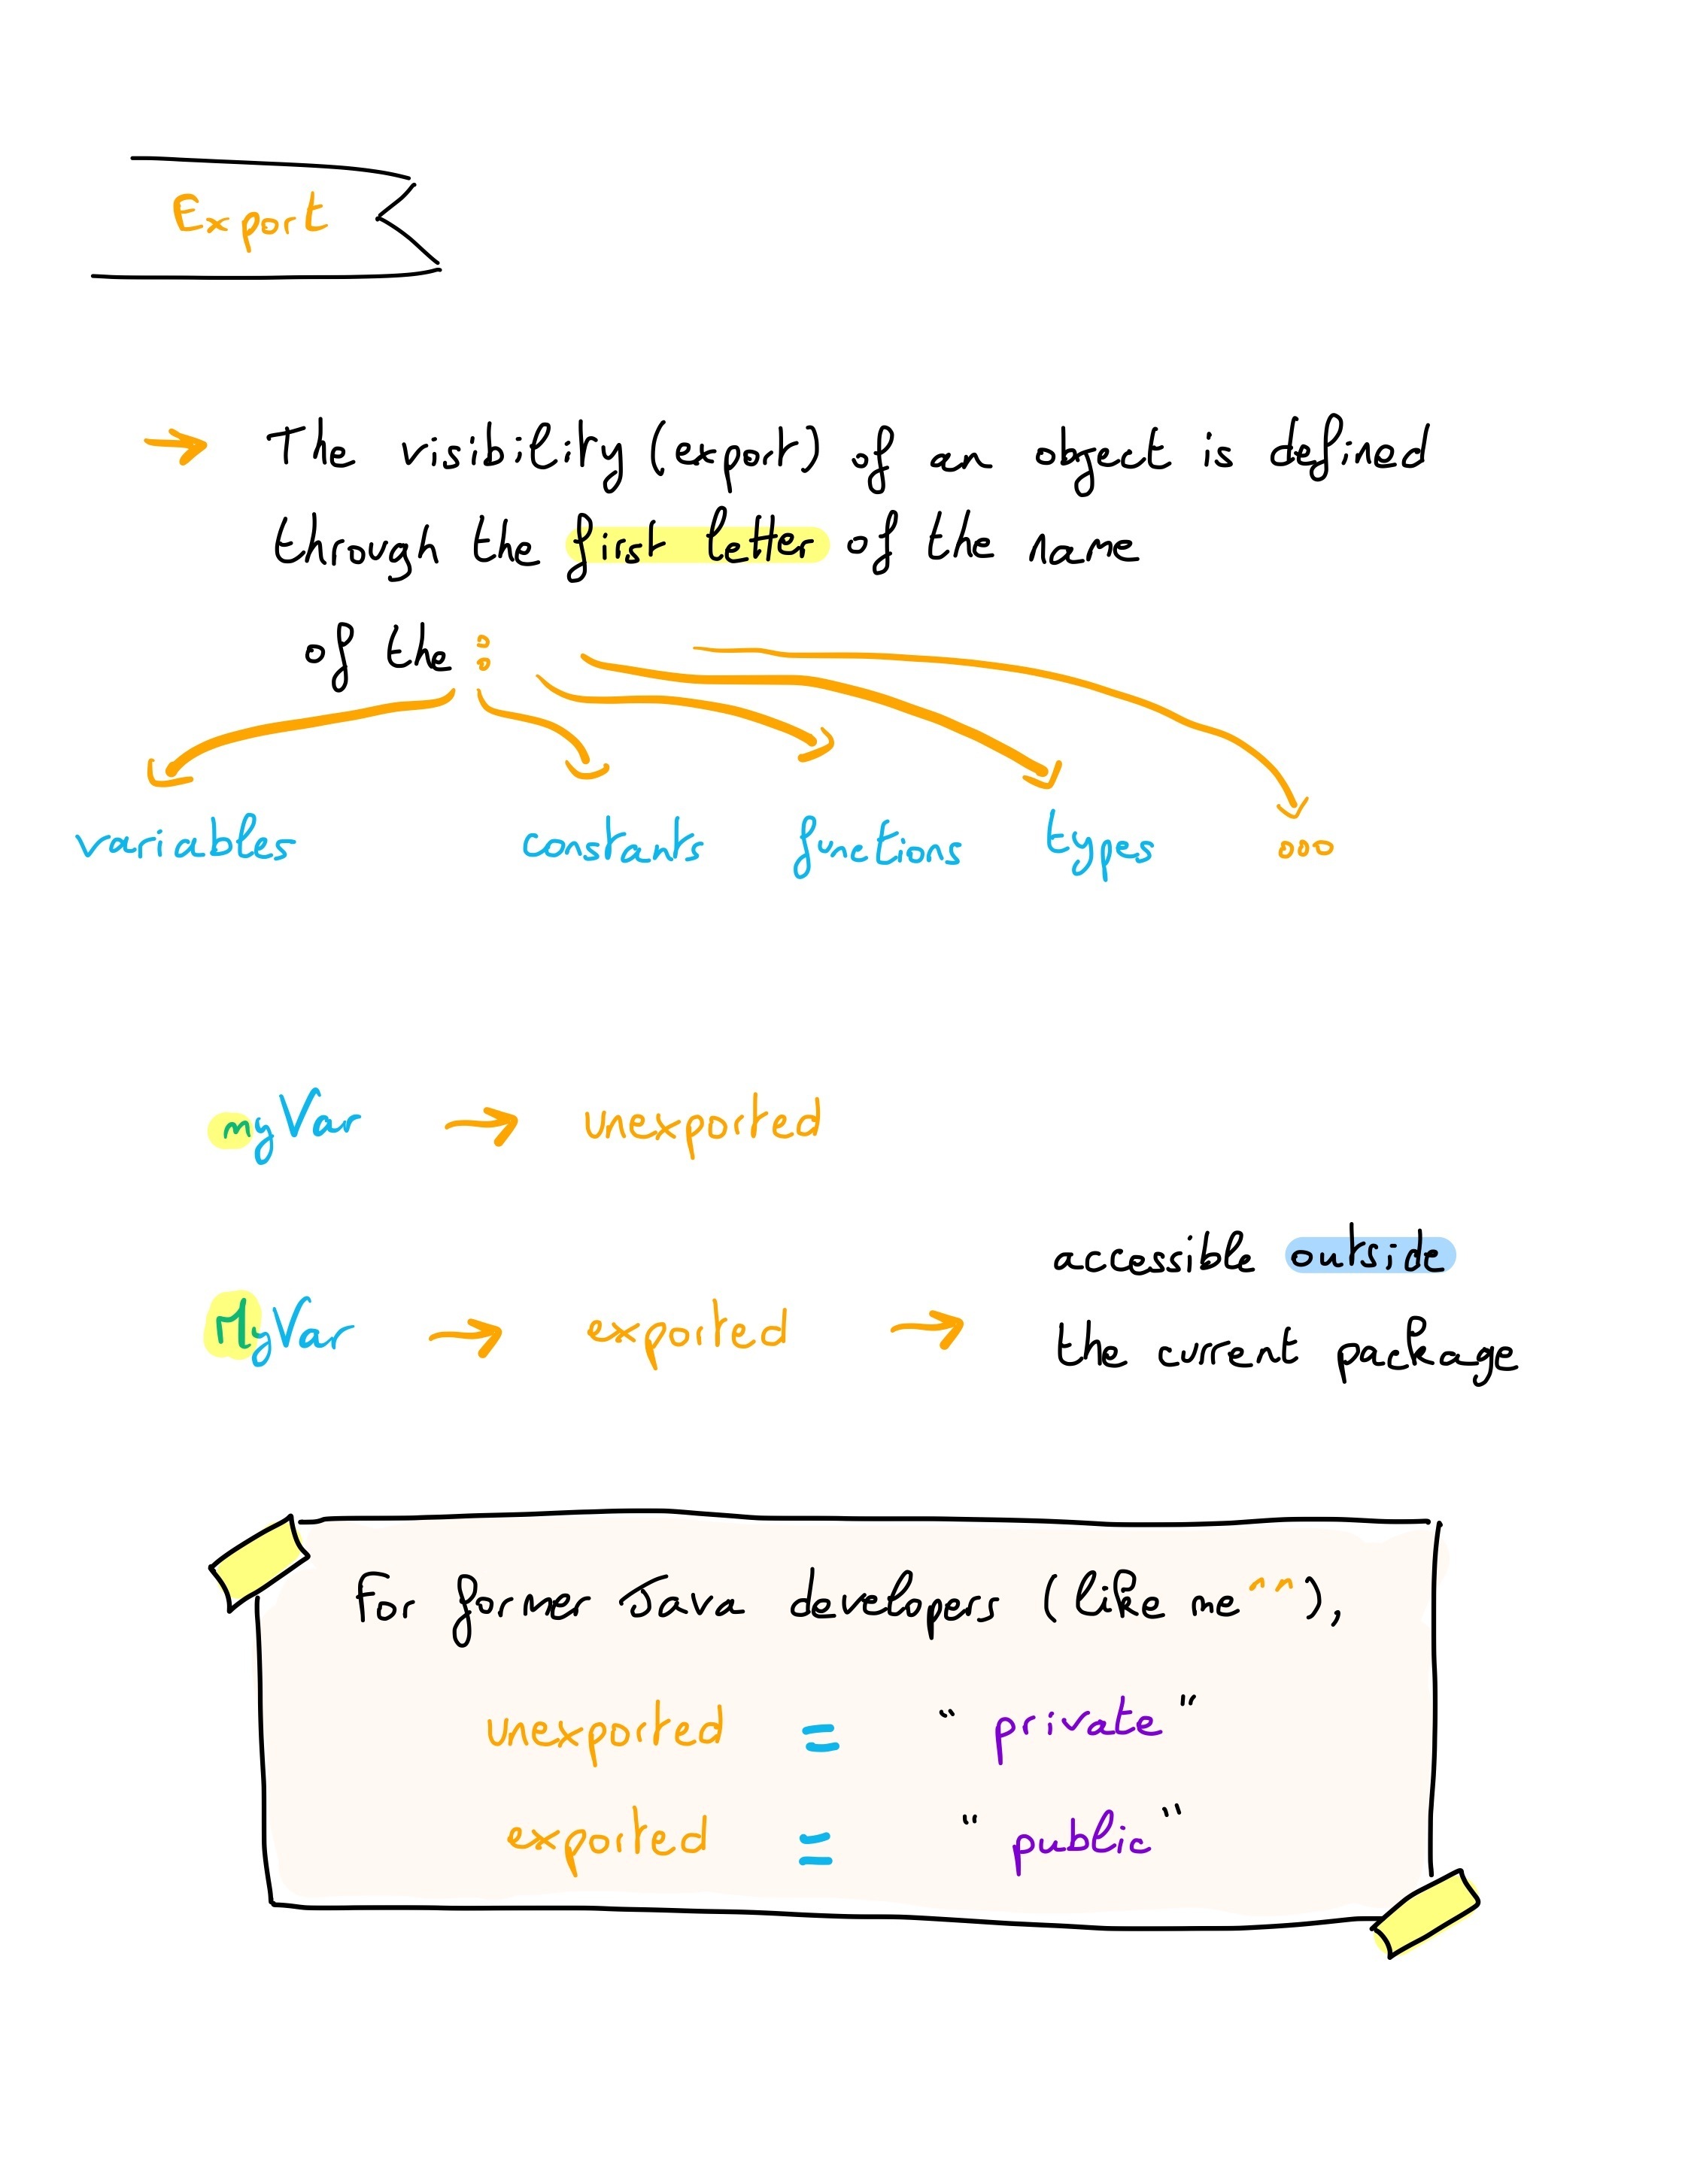 Export
→ The visibility (export) of an object is defined
through the first letter of the name
of the :
variables constants functions types ...
myVar → unexported
MyVar → exported → accessible outside
the current package
For former Java developers (like me ^^),
unexported = "private"
exported = "public"